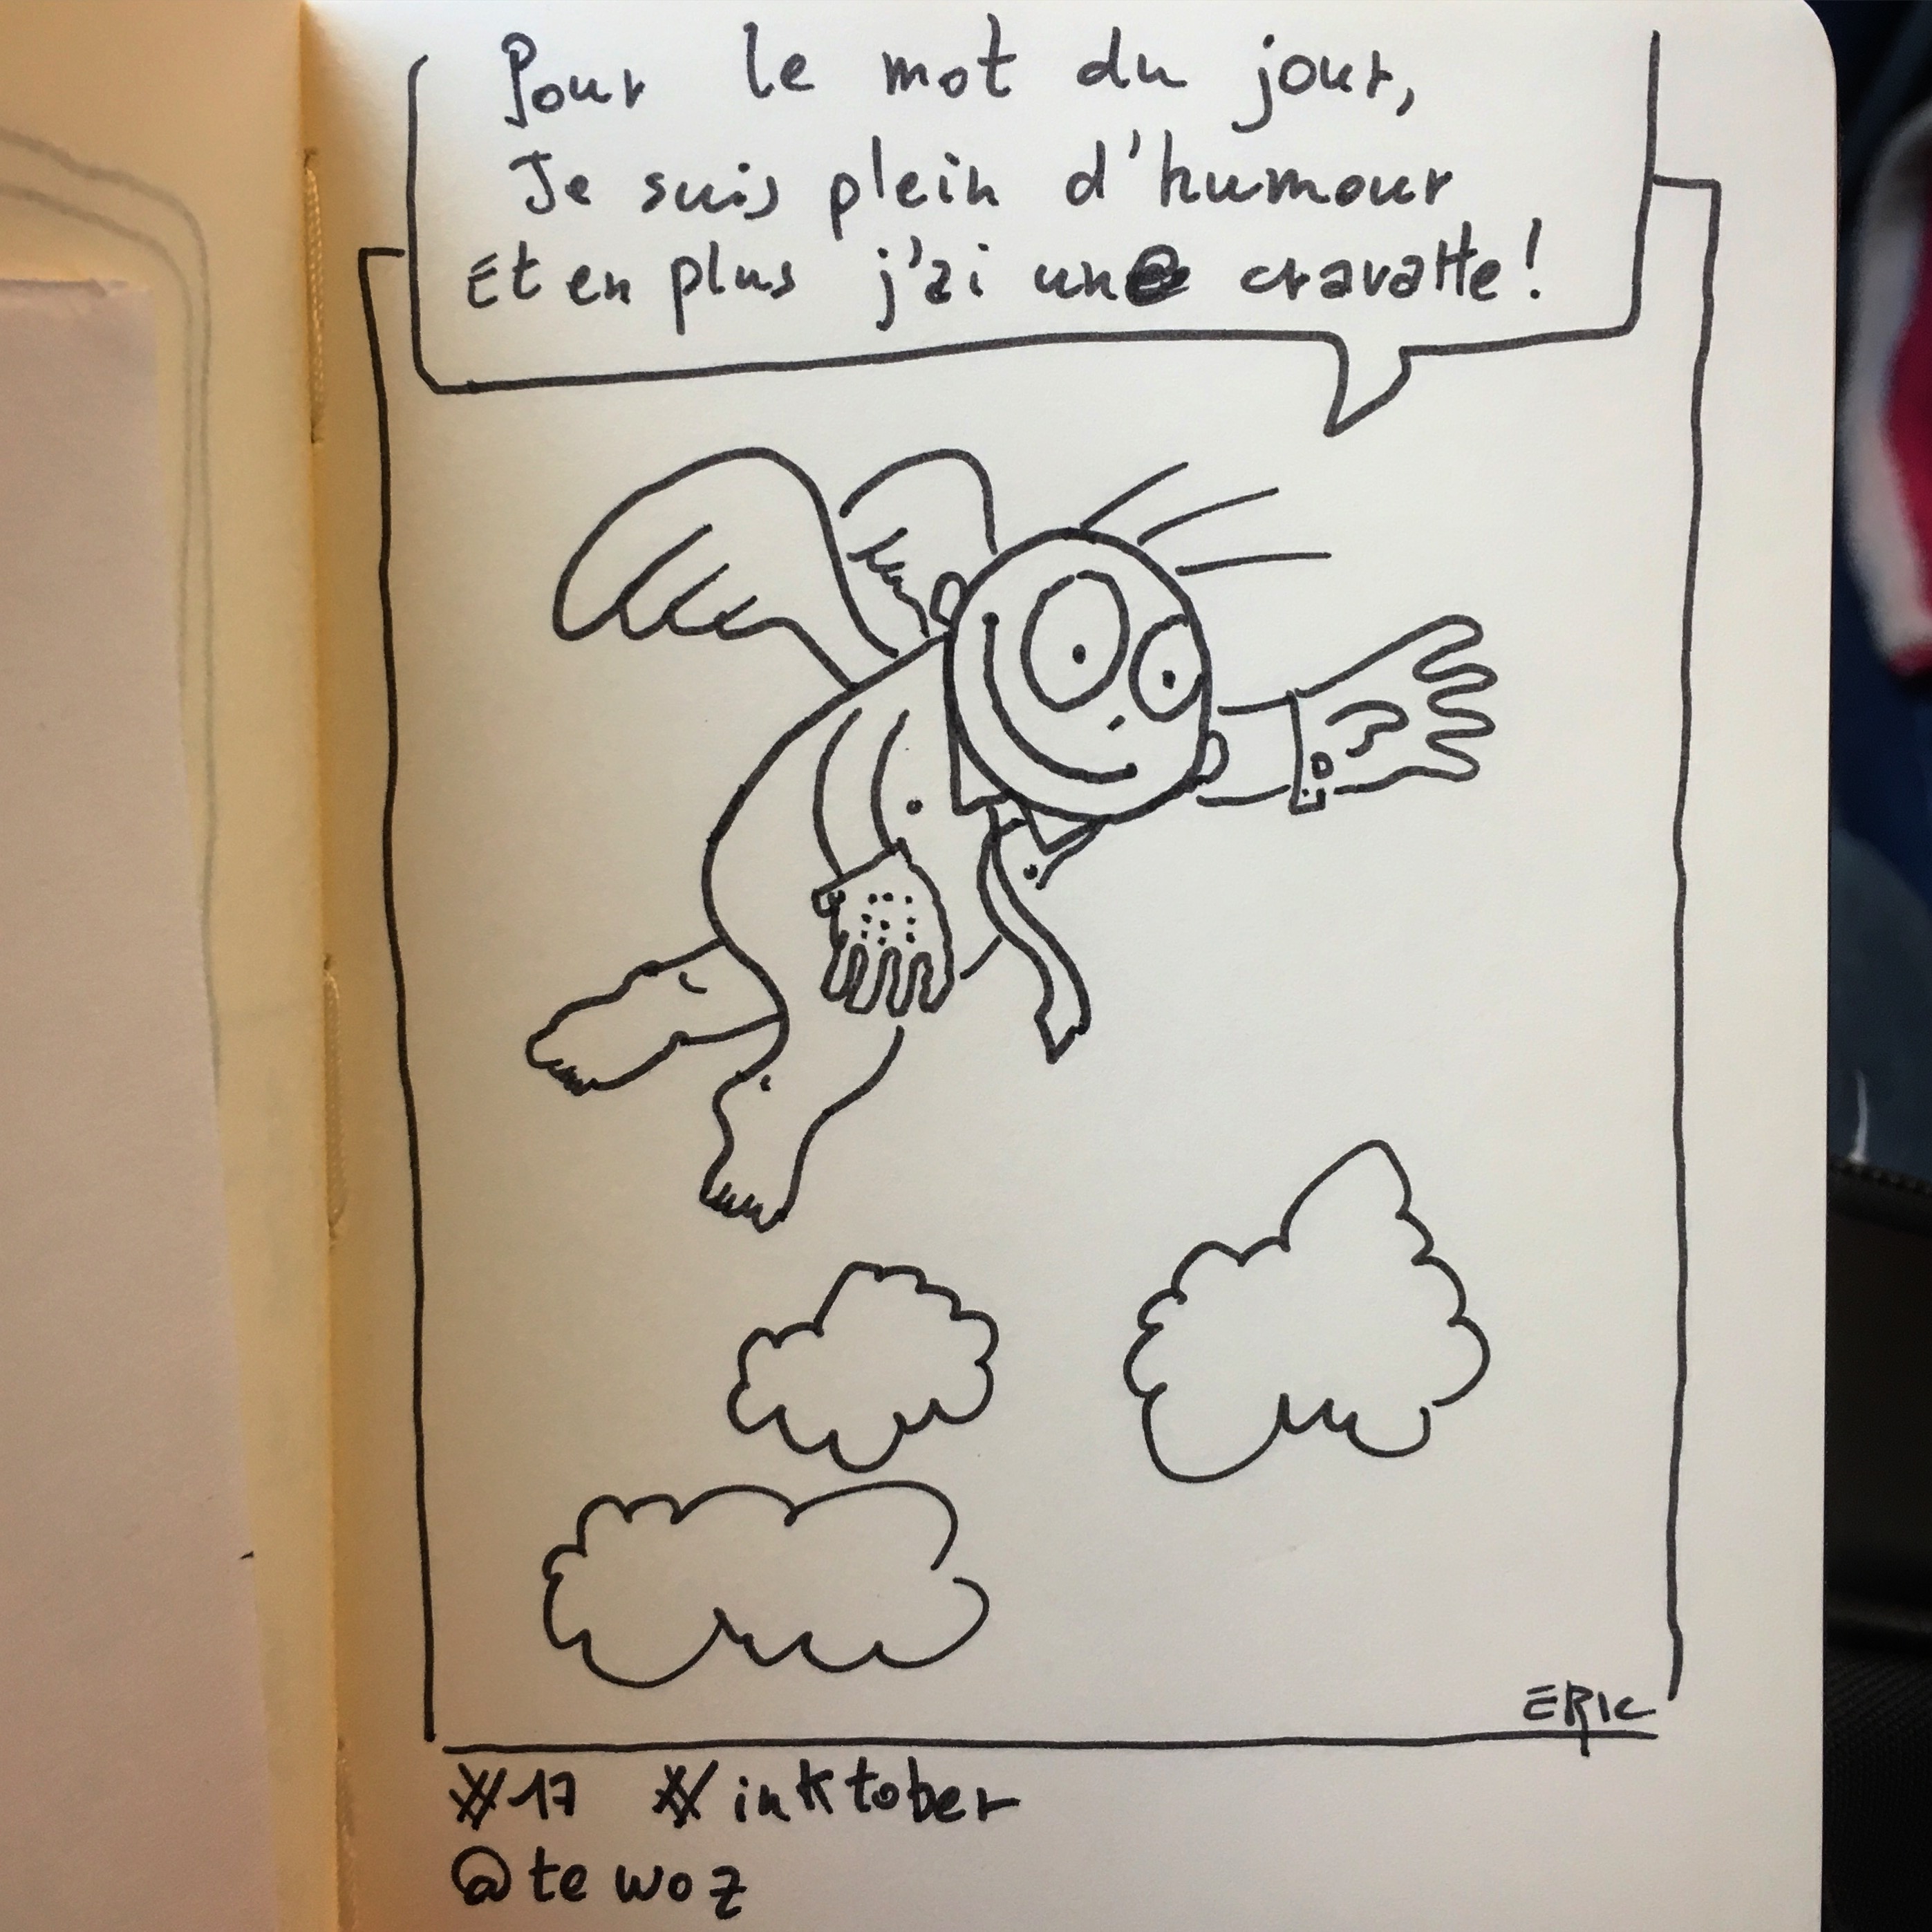 Pour le mot du jour,
Je suis plein d'humour
Et en plus j'ai une cravatte!
ERIC
#17 #inktober
@tewoz